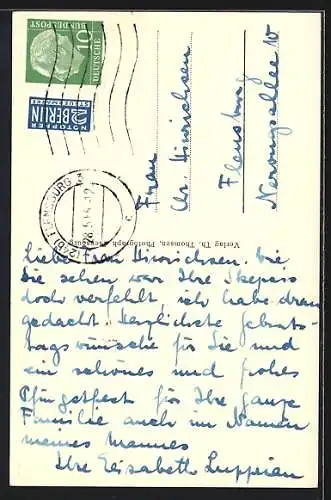 10
DEUTSCHE
BUNDESPOST
NOTOPFER
2 BERLIN
STEUERMARKE
FLENSBURG
28.5.55-12
c
Frau
Chr. Hinrichsen
Flensburg
Nerongsallee 10
Verlag Th. Thomsen, Photograph, Flensburg
Liebe Frau Hinrichsen. Wie
Sie sehen war Ihre Skepsis
doch verfehlt, ich habe dran
gedacht. Herzlichste Geburts-
tagswünsche für Sie und
ein schönes und frohes
Pfingstfest für Ihre ganze
Familie auch im Namen
meines Mannes
Ihre Elisabeth Luppian